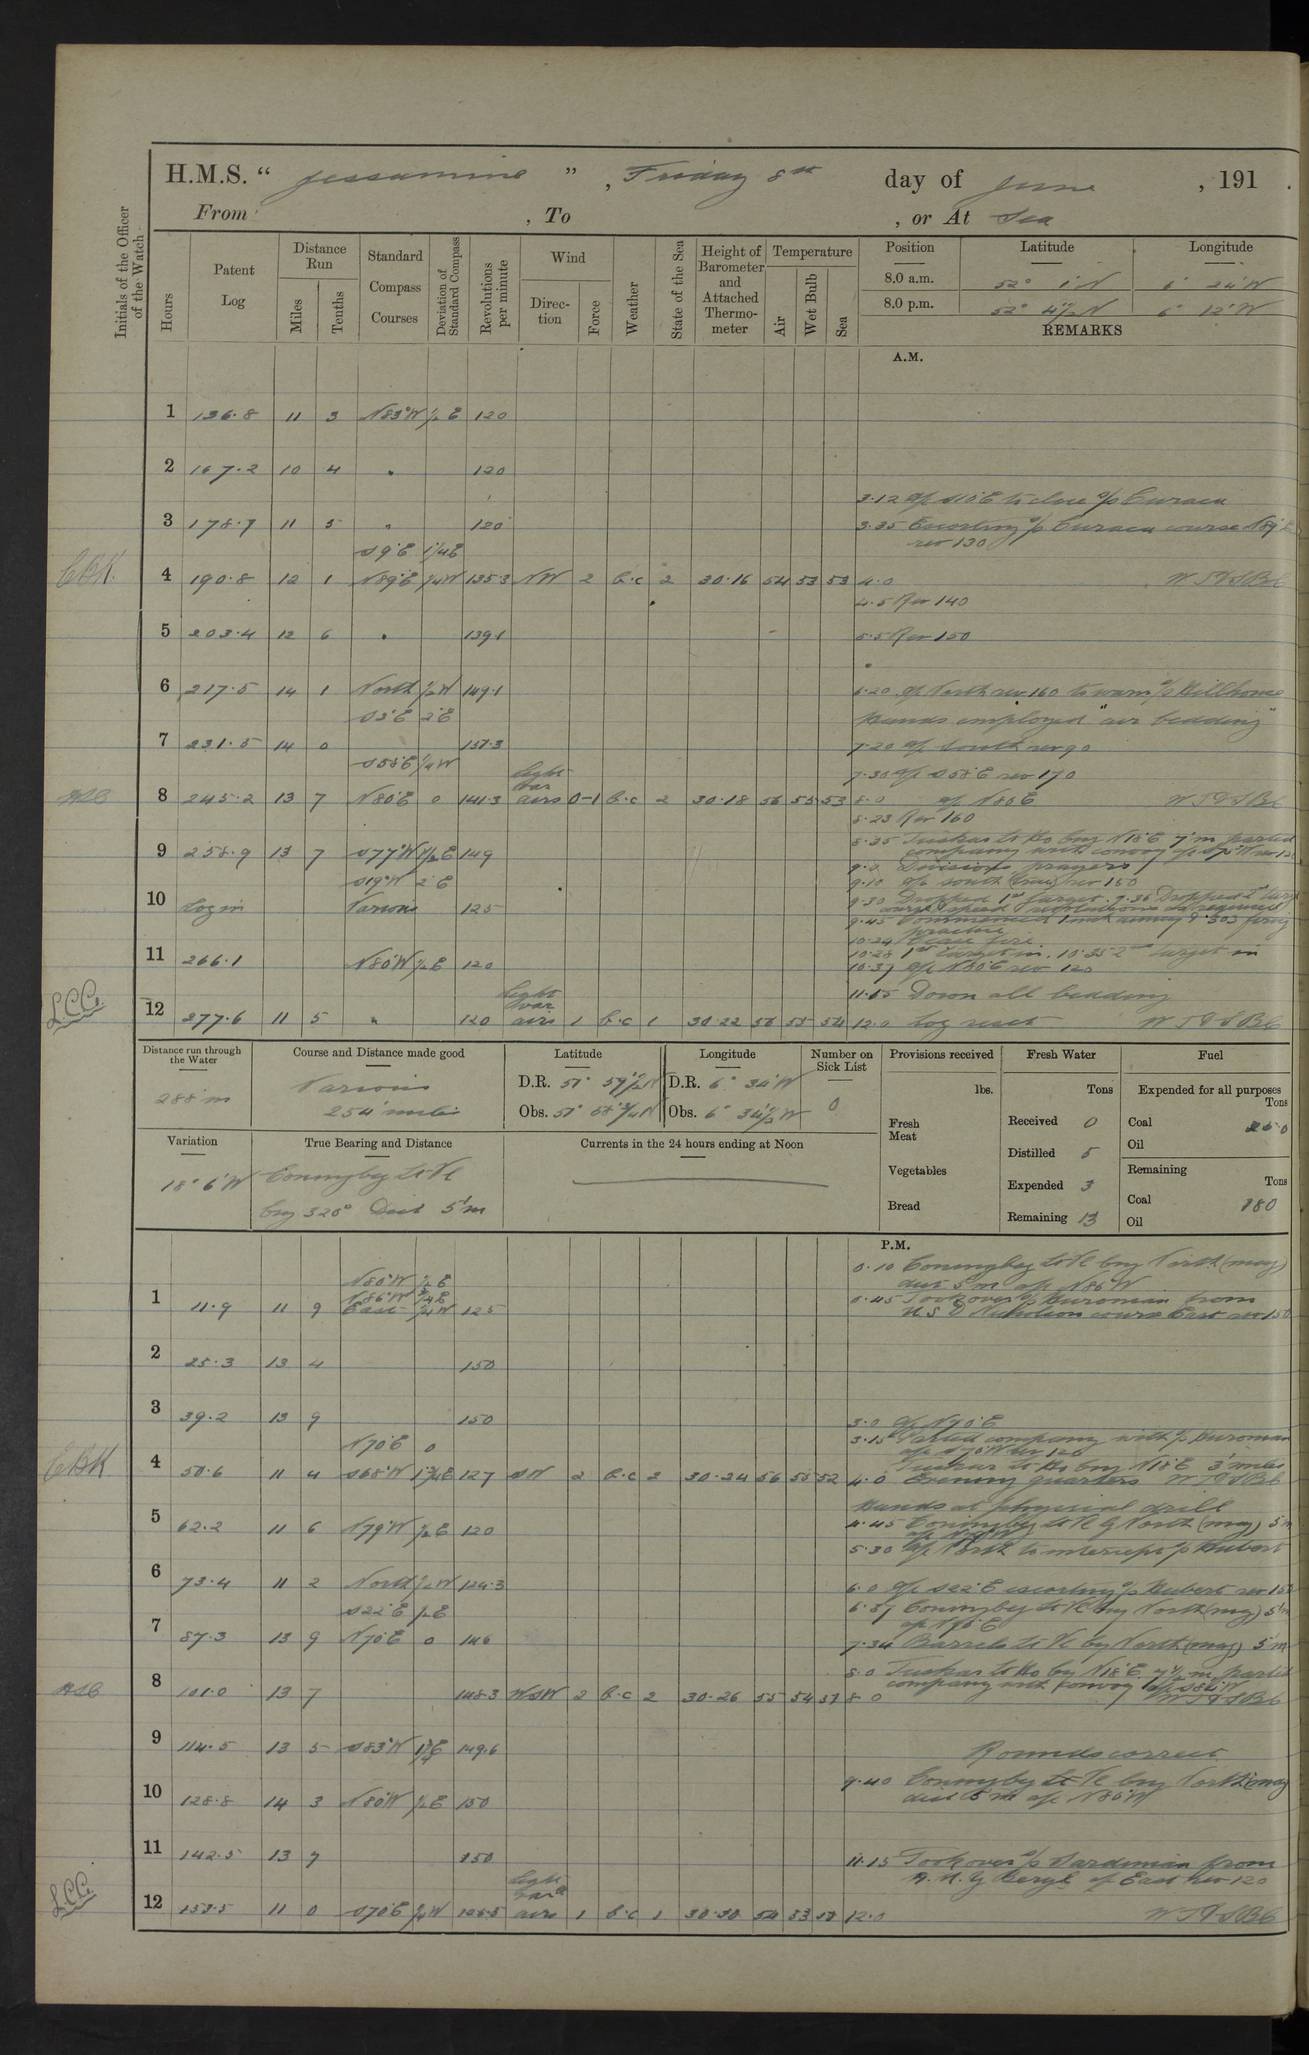 H.M.S. “ Jessamine ” , Friday 8th day of June , 191 .
From , To , or At Sea
Initials of the Officer of the Watch
Hours
Patent Log
Distance Run
Miles
Tenths
Standard Compass Courses
Deviation of Standard Compass
Revolutions per minute
Wind
Direction
Force
Weather
State of the Sea
Height of Barometer and Attached Thermometer
Temperature
Air
Wet Bulb
Sea
Position Latitude Longitude
8.0 a.m. 52° 1' N 6 24' W
8.0 p.m. 52° 4½ N 6° 12' W
REMARKS
A.M.
1 136.8 11 3 N83°W ½ E 120
2 167.2 10 4 " 120
3.12 a/c S10°E to close s/s Curaca
3 178.7 11 5 " 120 3.35 Escorting s/s Curaca course N89°E
rev 130
S9°E 1¼E
4 190.8 12 1 N89°E ¼W 135.3 NW 2 b.c 2 30.16 54 53 53 4.0
4.5 Rev 140
5 203.4 12 6 " 139.1 5.5 Rev 150
6 217.5 14 1 North ½W 149.1 6.20 a/c North rev 160 to warn s/s Billhouse
S3°E 2°E Hands employed "air bedding"
7 231.5 14 0 157.3 7.20 a/c South rev 90
S58°E ¼W light var 7.30 a/c S58°E rev 170
8 245.2 13 7 N80°E 0 141.3 airs 0-1 b.c 2 30.18 56 55 53 8.0 a/c N80E
8.23 Rev 160
8.35 Tuskar Lt Ho brg N18°E 7'm parted
9 258.9 13 7 S77°W 1½E 149 company with convoy
9.0 Divisions prayers
S19°W 2°E 9.10 a/c South (true) rev 150
10 Log in Various 125 9.30 Dropped 1st target. 9.36 Dropped 2nd target
9.45 Commenced 1 inch aiming & .303 firing
practice
10.24 Cease fire
11 266.1 N80°W ½E 120 10.28 1st target in. 10.35 2nd target in
10.37 a/c N80°E rev 120
light var 11.55 Down all bedding
12 277.6 11 5 " 120 airs 1 b.c 1 30.22 56 55 54 12.0 Log reset
Distance run through the Water
288 m
Course and Distance made good
Various
254 miles
Latitude
D.R. 51° 59½ N
Obs. 51° 58¾ N
Longitude
D.R. 6° 34' W
Obs. 6° 34½ W
Number on Sick List
0
Variation
18° 6' W
True Bearing and Distance
Coningbeg Lt Vl
brg 320° Dist 5'm
Currents in the 24 hours ending at Noon
Provisions received
lbs.
Fresh Meat
Vegetables
Bread
Fresh Water
Tons
Received 0
Distilled 5
Expended 3
Remaining 13
Fuel
Expended for all purposes
Tons
Coal 25.0
Oil
Remaining
Tons
Coal 180
Oil
P.M.
0.10 Coningbeg Lt Vl brg North (mag)
N80°W ½E dist 5'm a/c N86°W
N86°W ¾E
1 11.9 11 9 East ¼W 125 0.45 Took over s/s Huronian from
U S D Nicholson course East rev 150
2 25.3 13 4 150
3 39.2 13 9 150 3.0 a/c N70°E
N70°E 0 3.15 Parted company with s/s Huronian
Tuskar Lt Ho brg N18°E 3 miles
4 50.6 11 4 S68°W 1¾E 127 SW 2 b.c 2 30.24 56 55 52 4.0 Evening quarters
Hands at physical drill
5 62.2 11 6 N79°W ½E 120 4.45 Coningbeg Lt Vl brg North (mag) 5m
5.30 a/c North to intercept s/s Hubert
6 73.4 11 2 North ½W 124.3 6.0 a/c S22°E escorting s/s Hubert rev 150
S22°E ½E 6.37 Coningbeg Lt Vl brg North (mag) 5'm
a/c N70°E
7 87.3 13 9 N70°E 0 146 7.34 Barrels Lt Vl by North (mag) 5'm
8.0 Tuskar Lt Ho by N18°E 7½ m parted
8 101.0 13 7 148.3 WSW 2 b.c 2 30.26 55 54 51 8 0 company with convoy a/c S84°W
9 114.5 13 5 S83°W 1¾E 149.6 Rounds correct
9.40 Coningbeg Lt Vl brg North (mag)
10 128.8 14 3 N80°W ½E 150 dist 5'm a/c N80°W
11 142.5 13 7 150 11.15 Took over s/s Sardinian from
H.M.Y Beryl a/c East rev 120
light var
12 153.5 11 0 S70°E ¼W 125.5 airs 1 b.c 1 30.30 54 53 12.0
EBK
LCC
EBK
LCC